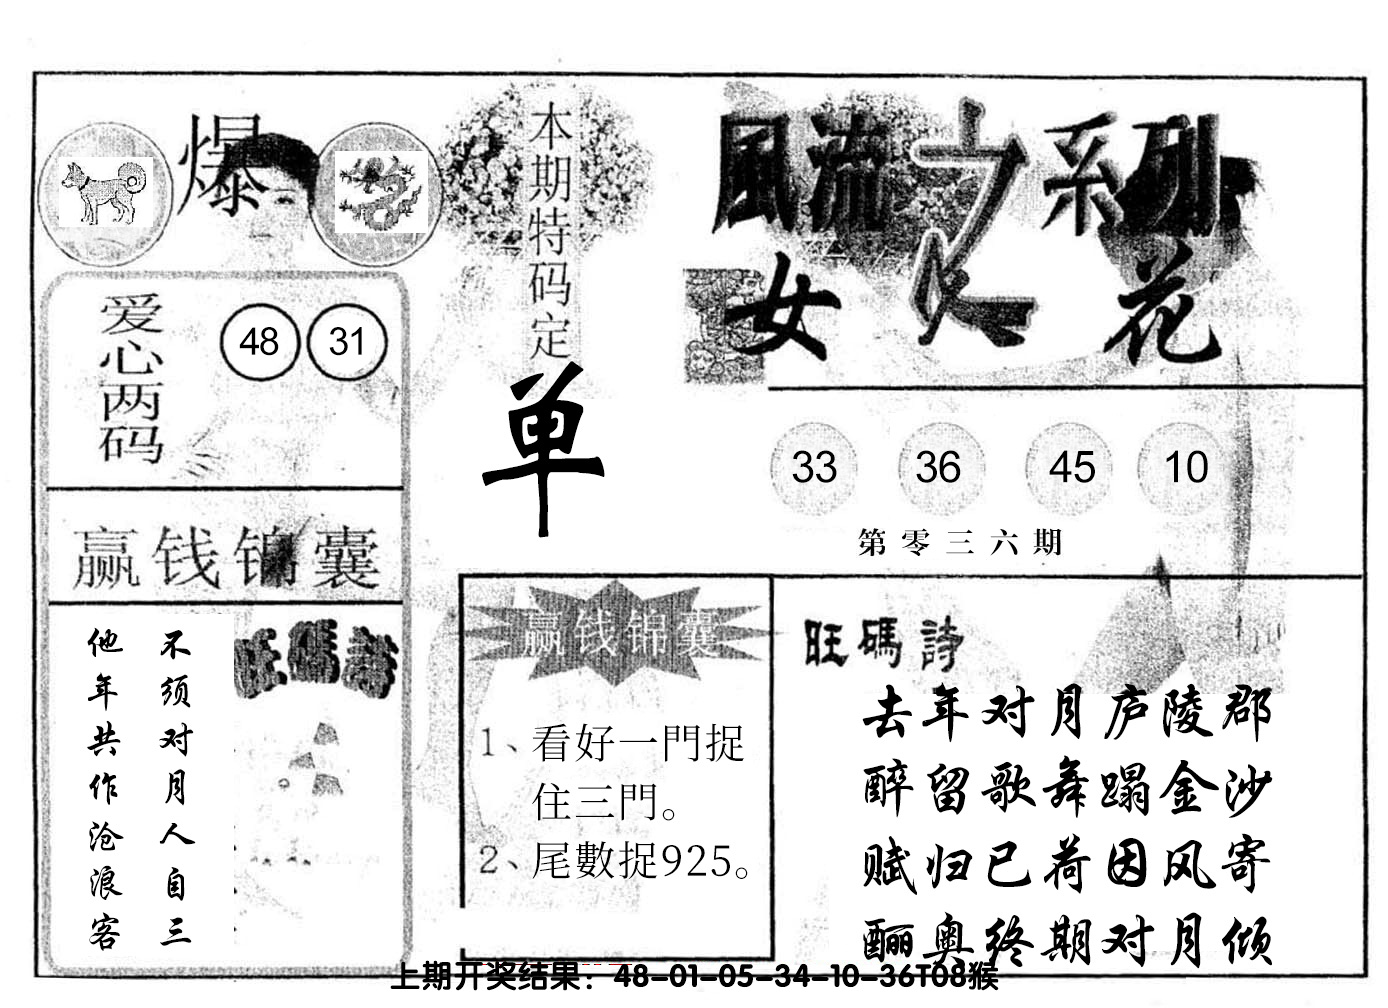 爆
本期特码定
单
風流之系列
女人花
爱心两码
48 31
33 36 45 10
第零三六期
赢钱锦囊
旺碼詩
不须对月人自三
他年共作沧浪客
赢钱锦囊
1、看好一門捉
住三門。
2、尾數捉925。
旺碼詩
去年对月庐陵郡
醉留歌舞蹋金沙
赋归已荷因风寄
酾奥终期对月倾
上期开奖结果：48-01-05-34-10-36T08猴